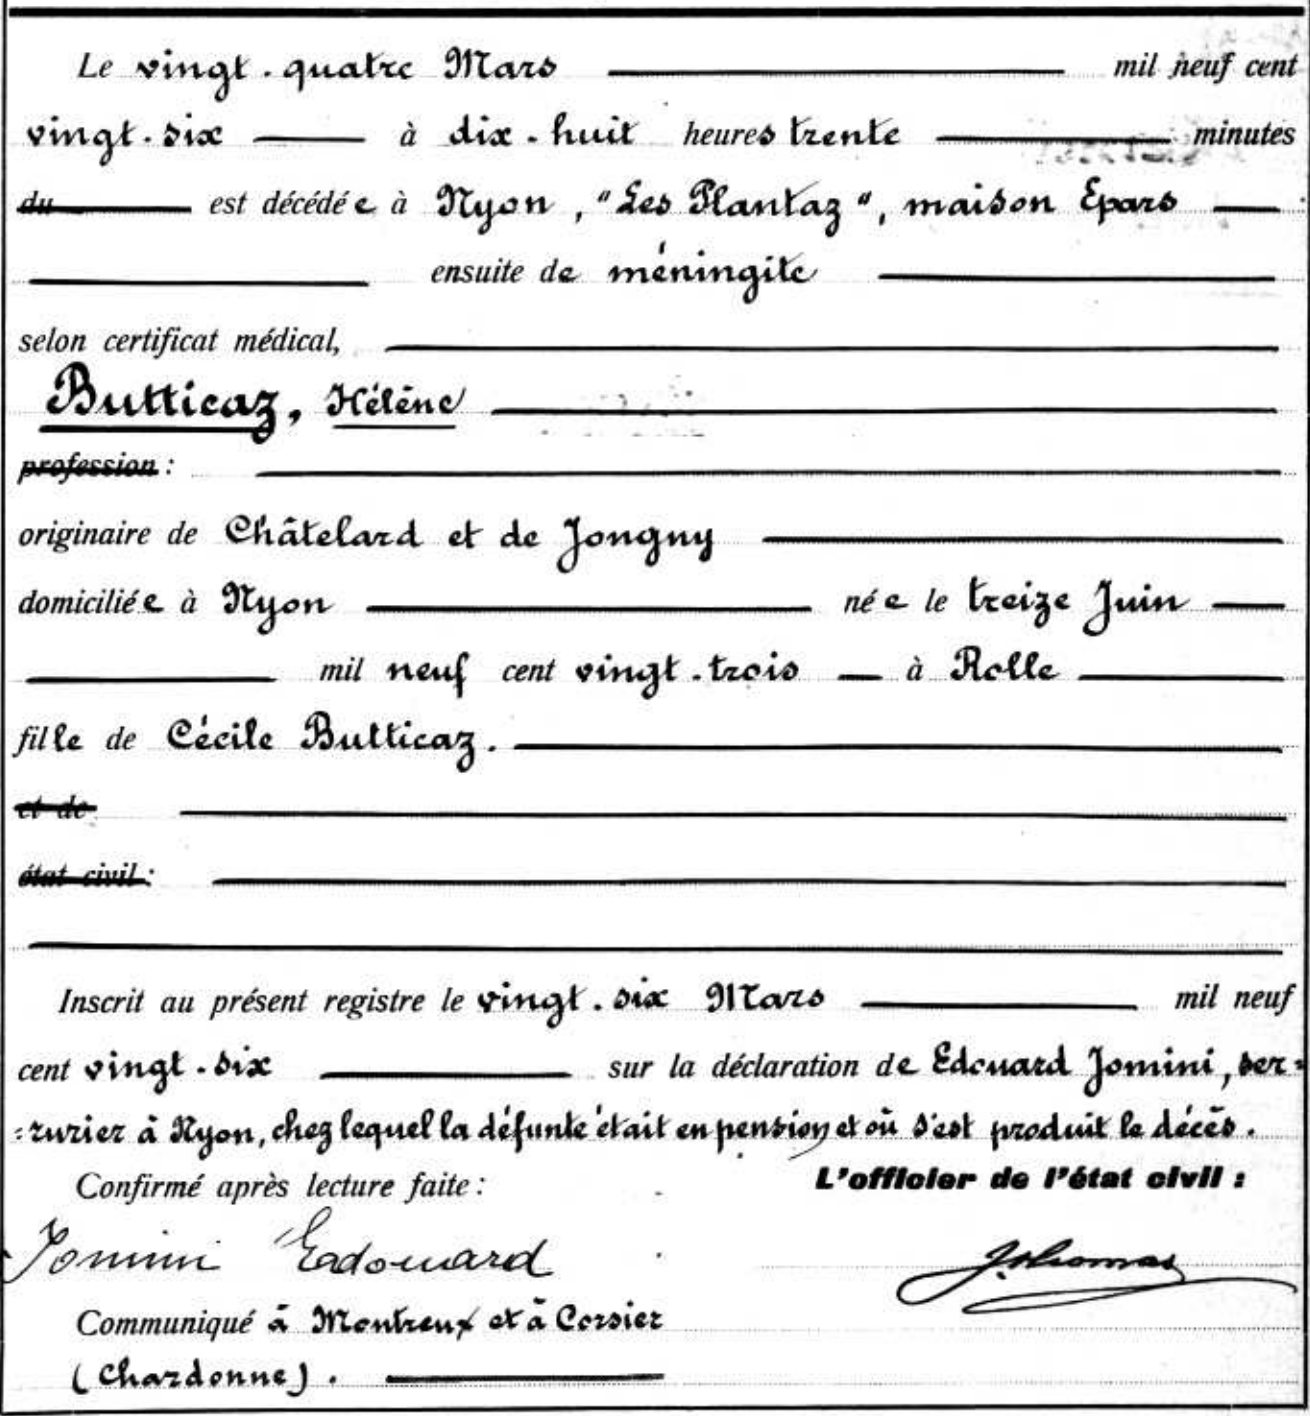 Le vingt-quatre Mars mil neuf cent
vingt-six à dix-huit heures trente minutes
du est décédée à Nyon, "Les Plantaz", maison Epars
ensuite de méningite
selon certificat médical,
Butticaz, Hélène
profession :
originaire de Châtelard et de Jongny
domiciliée à Nyon née le treize Juin
mil neuf cent vingt-trois à Rolle
fille de Cécile Butticaz.
et de
état civil :
Inscrit au présent registre le vingt-six Mars mil neuf
cent vingt-six sur la déclaration de Edouard Jomini, ser=
=rurier à Nyon, chez lequel la défunte était en pension et où s'est produit le décès.
Confirmé après lecture faite : L'officier de l'état civil :
Jomini Edouard J. Thomas
Communiqué à Montreux et à Corsier
(Chardonne).